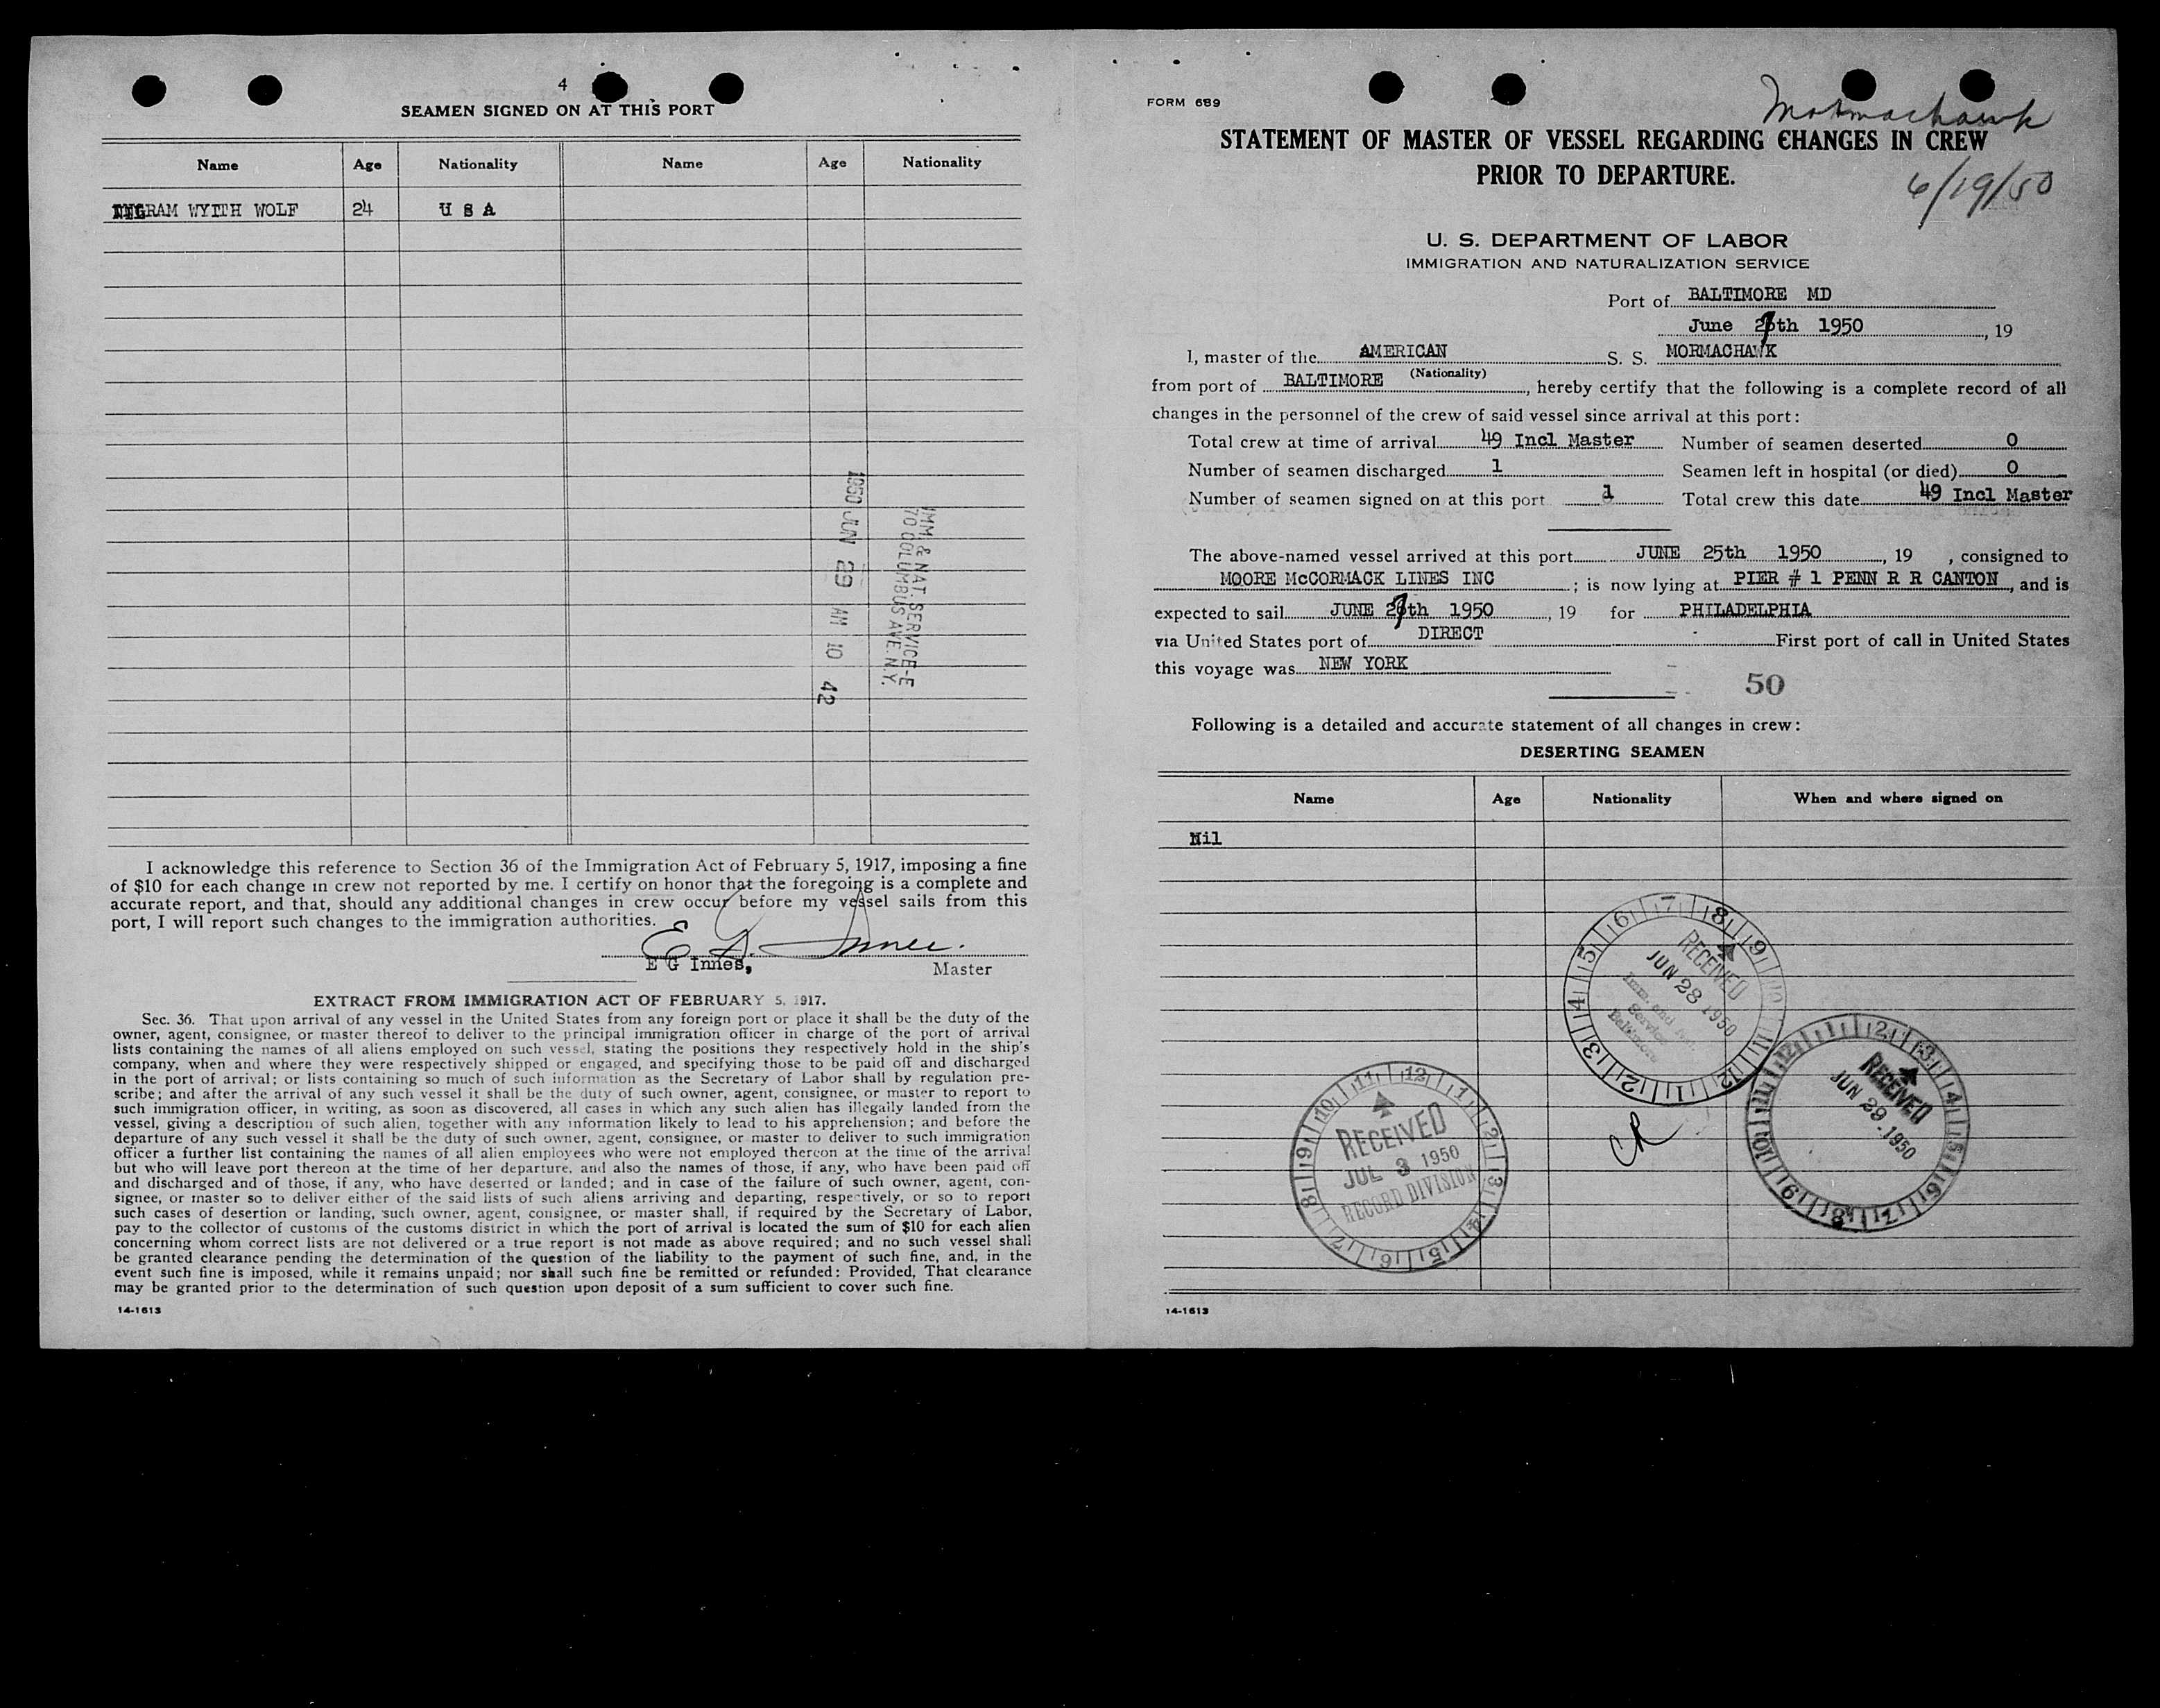 4
SEAMEN SIGNED ON AT THIS PORT
Name Age Nationality Name Age Nationality
INGRAM WYITH WOLF 24 U S A
1950 JUN 29 AM 10 42
IMM. & NAT. SERVICE-E
70 COLUMBUS AVE. N.Y.
I acknowledge this reference to Section 36 of the Immigration Act of February 5, 1917, imposing a fine
of $10 for each change in crew not reported by me. I certify on honor that the foregoing is a complete and
accurate report, and that, should any additional changes in crew occur before my vessel sails from this
port, I will report such changes to the immigration authorities.
E G Innes.
E G Innes, Master
EXTRACT FROM IMMIGRATION ACT OF FEBRUARY 5, 1917.
Sec. 36. That upon arrival of any vessel in the United States from any foreign port or place it shall be the duty of the
owner, agent, consignee, or master thereof to deliver to the principal immigration officer in charge of the port of arrival
lists containing the names of all aliens employed on such vessel, stating the positions they respectively hold in the ship's
company, when and where they were respectively shipped or engaged, and specifying those to be paid off and discharged
in the port of arrival; or lists containing so much of such information as the Secretary of Labor shall by regulation pre-
scribe; and after the arrival of any such vessel it shall be the duty of such owner, agent, consignee, or master to report to
such immigration officer, in writing, as soon as discovered, all cases in which any such alien has illegally landed from the
vessel, giving a description of such alien, together with any information likely to lead to his apprehension; and before the
departure of any such vessel it shall be the duty of such owner, agent, consignee, or master to deliver to such immigration
officer a further list containing the names of all alien employees who were not employed thereon at the time of the arrival
but who will leave port thereon at the time of her departure, and also the names of those, if any, who have been paid off
and discharged and of those, if any, who have deserted or landed; and in case of the failure of such owner, agent, con-
signee, or master so to deliver either of the said lists of such aliens arriving and departing, respectively, or so to report
such cases of desertion or landing, such owner, agent, consignee, or master shall, if required by the Secretary of Labor,
pay to the collector of customs of the customs district in which the port of arrival is located the sum of $10 for each alien
concerning whom correct lists are not delivered or a true report is not made as above required; and no such vessel shall
be granted clearance pending the determination of the question of the liability to the payment of such fine, and, in the
event such fine is imposed, while it remains unpaid; nor shall such fine be remitted or refunded: Provided, That clearance
may be granted prior to the determination of such question upon deposit of a sum sufficient to cover such fine.
14-1613
FORM 689
Mormachawk
STATEMENT OF MASTER OF VESSEL REGARDING CHANGES IN CREW
PRIOR TO DEPARTURE.
6/19/50
U. S. DEPARTMENT OF LABOR
IMMIGRATION AND NATURALIZATION SERVICE
Port of BALTIMORE MD
June 27th 1950, 19
I, master of the AMERICAN S. S. MORMACHAWK
(Nationality)
from port of BALTIMORE, hereby certify that the following is a complete record of all
changes in the personnel of the crew of said vessel since arrival at this port:
Total crew at time of arrival 49 Incl Master Number of seamen deserted 0
Number of seamen discharged 1 Seamen left in hospital (or died) 0
Number of seamen signed on at this port 1 Total crew this date 49 Incl Master
The above-named vessel arrived at this port JUNE 25th 1950, 19 , consigned to
MOORE McCORMACK LINES INC; is now lying at PIER # 1 PENN R R CANTON, and is
expected to sail JUNE 27th 1950, 19 for PHILADELPHIA
via United States port of DIRECT First port of call in United States
this voyage was NEW YORK
50
Following is a detailed and accurate statement of all changes in crew:
DESERTING SEAMEN
Name Age Nationality When and where signed on
Nil
RECEIVED
JUN 28 1950
Imm. and
Service
Baltimore
RECEIVED
JUN 29 1950
CR
RECEIVED
JUL 3 1950
RECORD DIVISION
14-1613